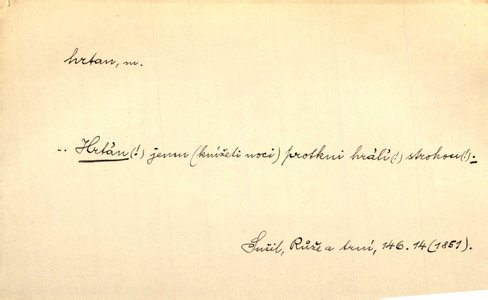 hrtan, m.
.. Hrtán (!) jemu (knížeti noci) protkni hrálí (!) strohou (!).
Sušil, Růže a trní, 146.14 (1851).